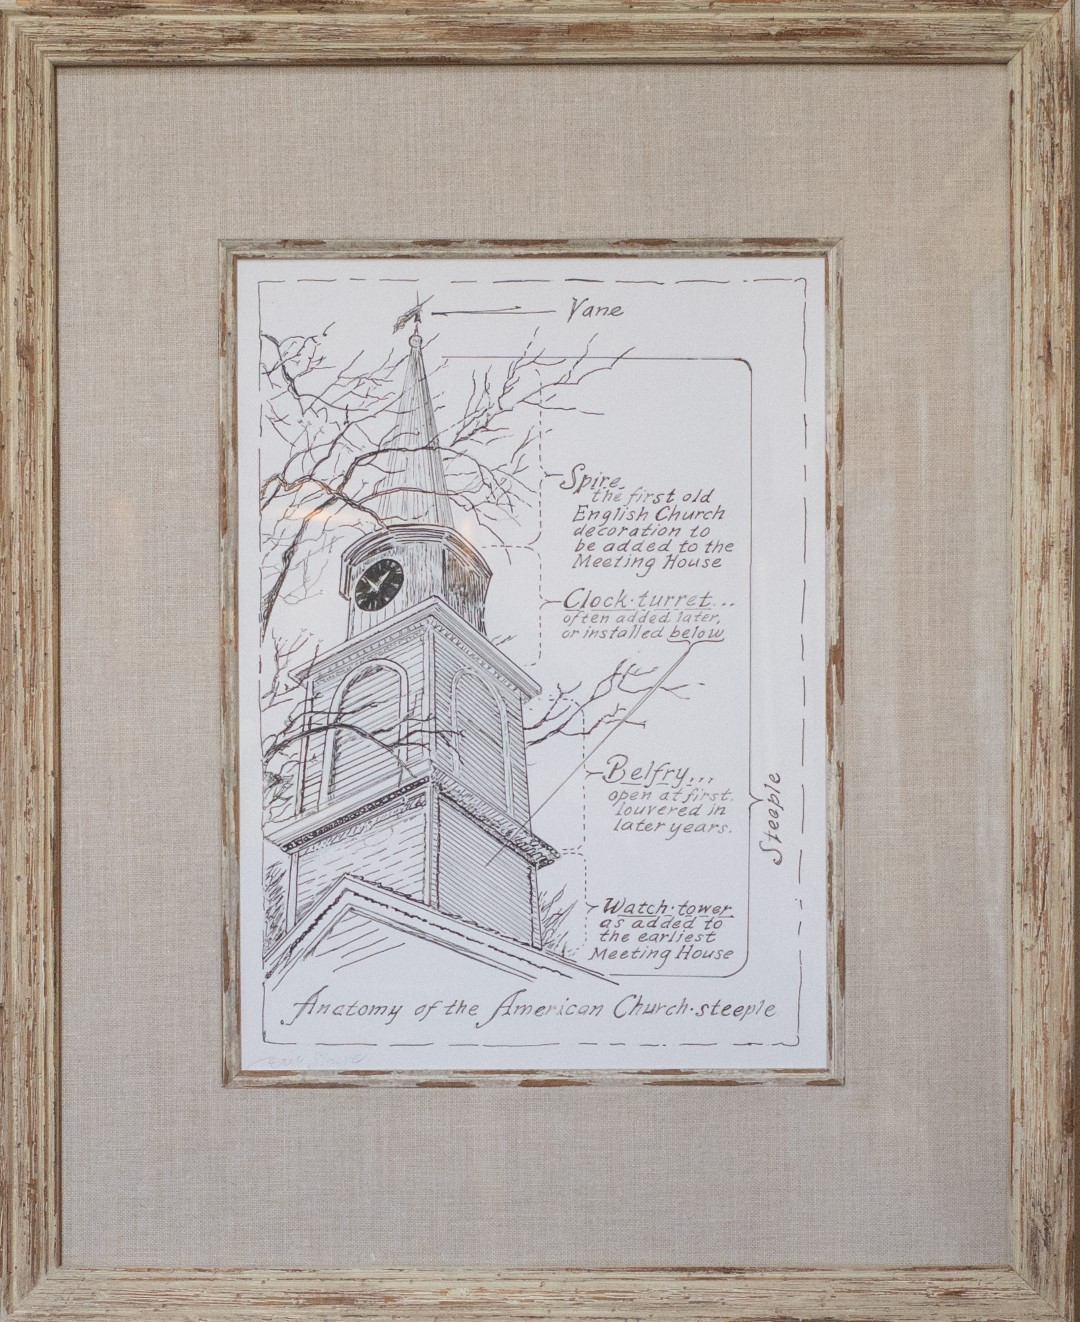 Vane
Spire
the first old
English Church
decoration to
be added to the
Meeting House
Clock·turret...
often added later,
or installed below
Belfry...
open at first,
louvered in
later years.
Steeple
Watch·tower
as added to
the earliest
Meeting House
Anatomy of the American Church·steeple